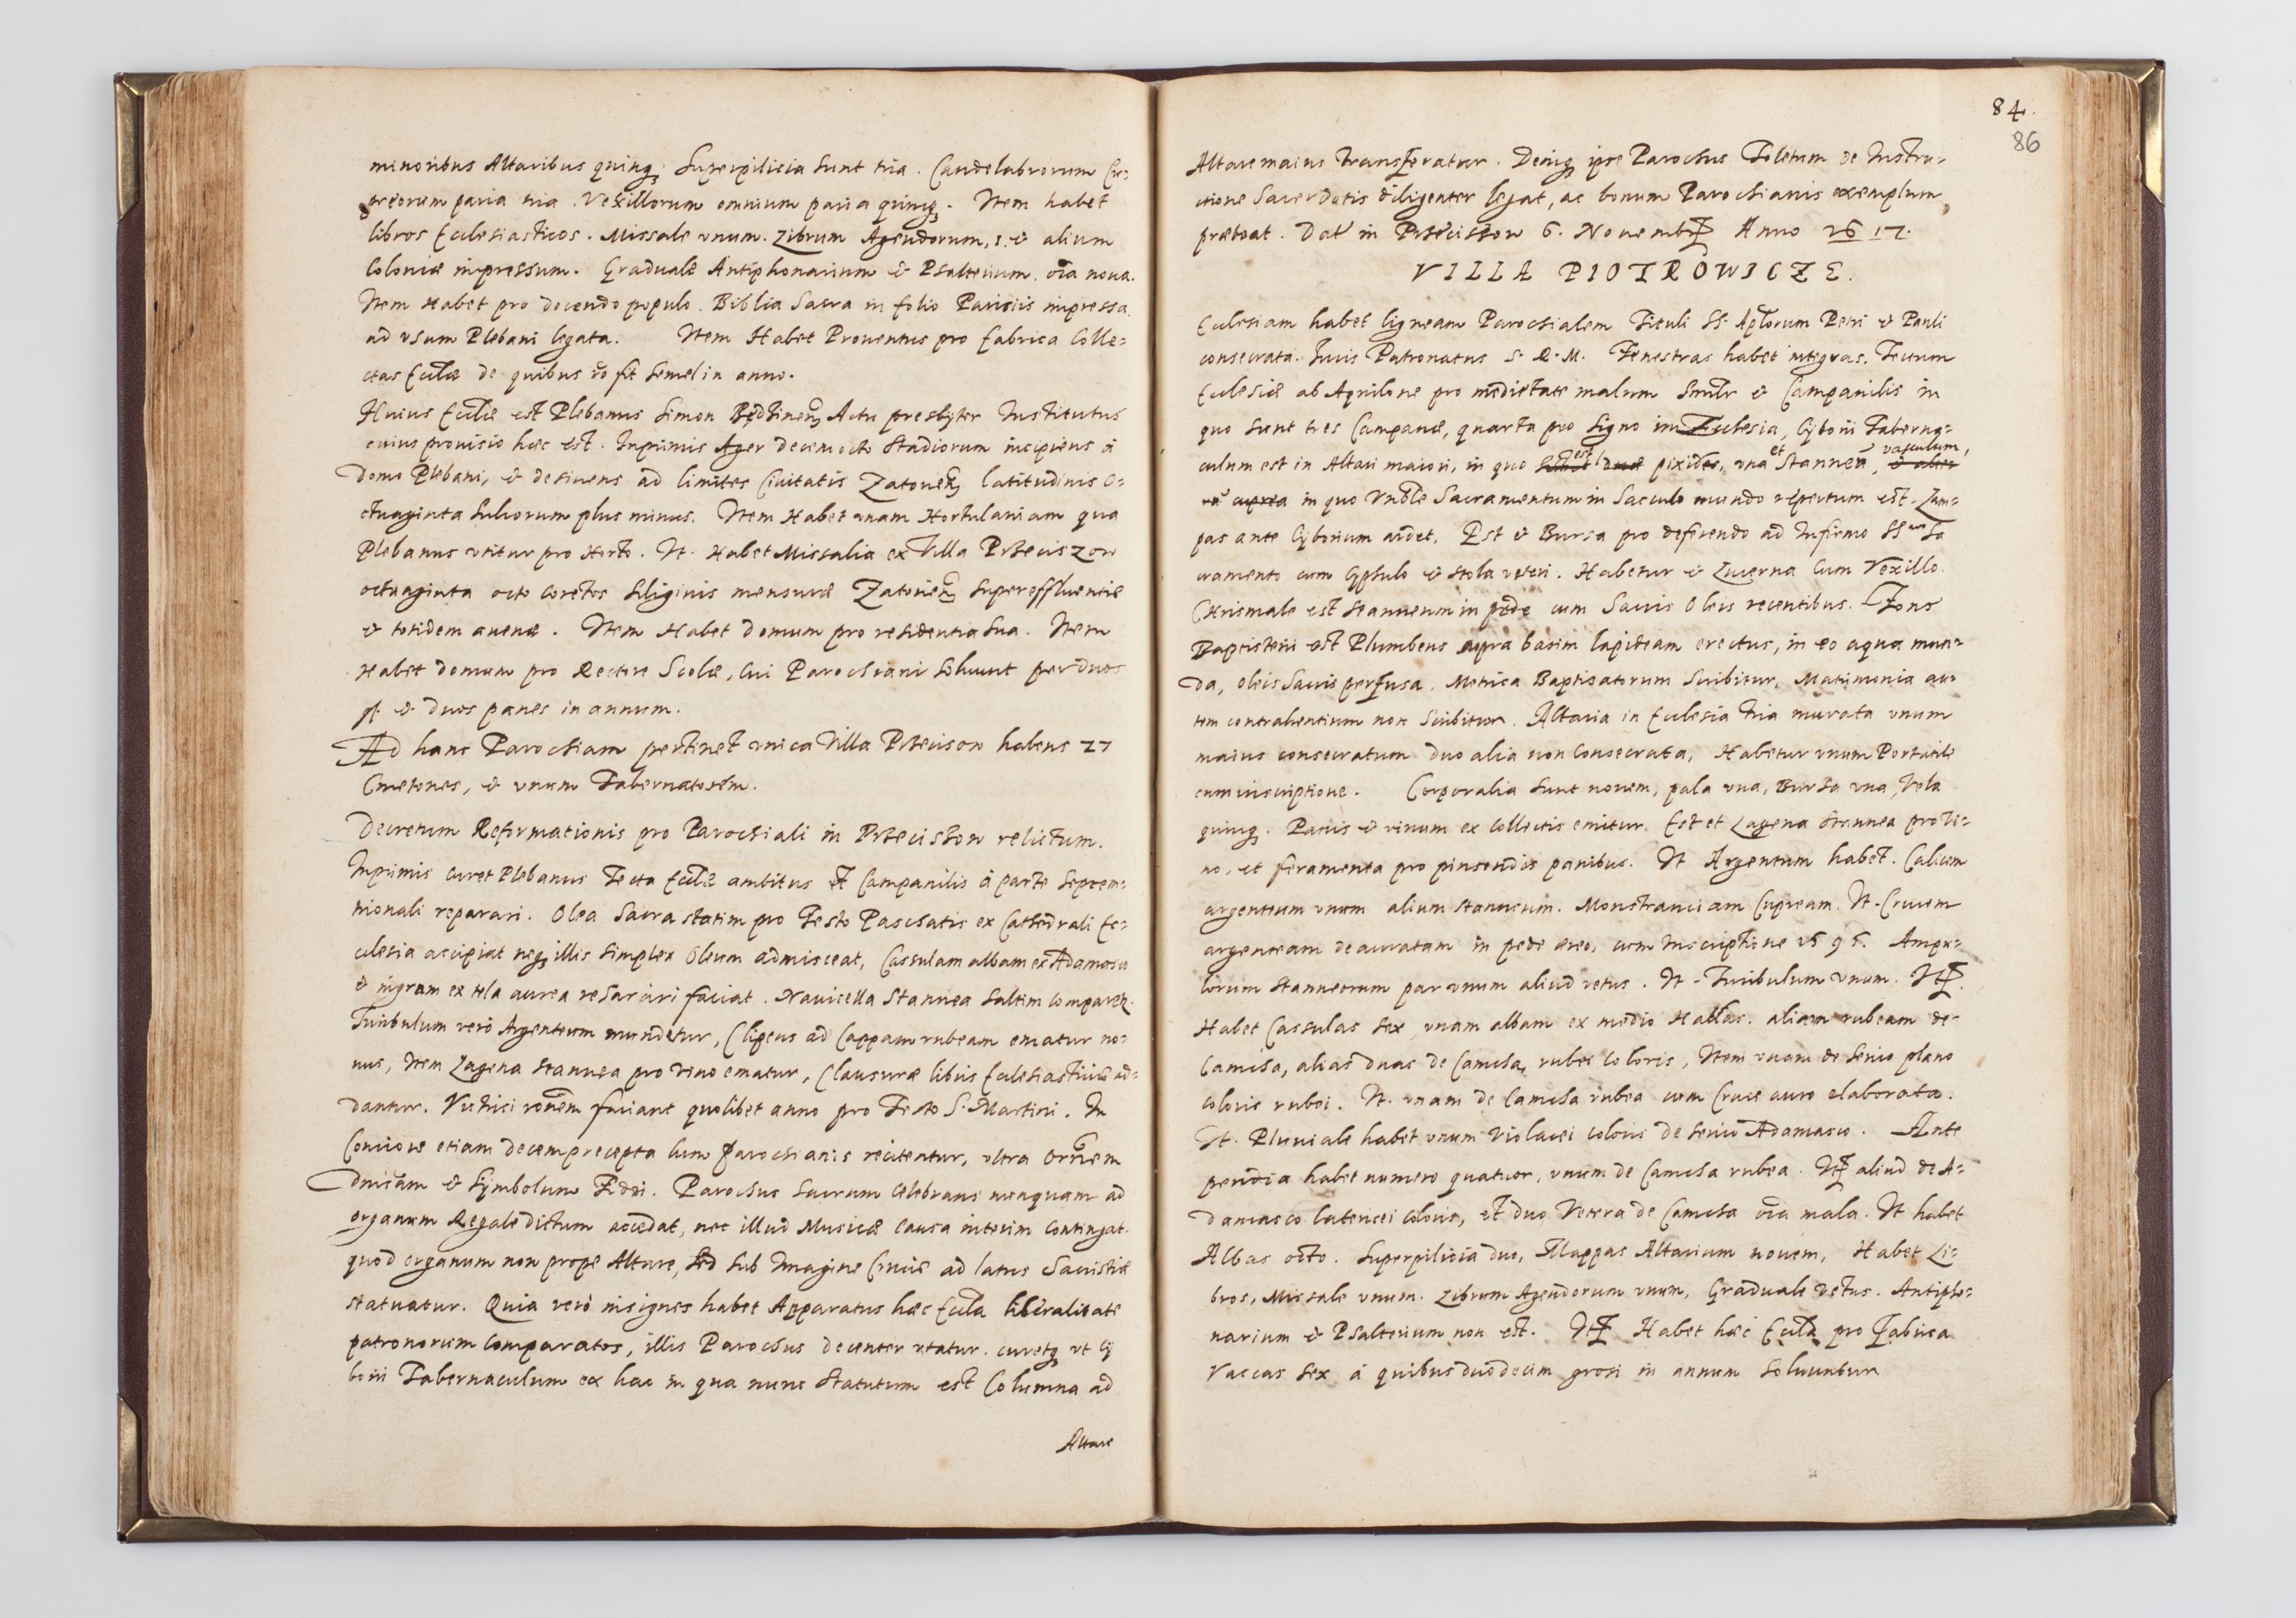 minoribus Altaribus quinq; Superpilicia sunt tria. Candelabrorum Cu-
preorum paria tria. Vexillorum omnium paria quinq;. Item habet
libros Ecclesiasticos. Missale vnum. Librum Agendorum, 1. & alium
Coloniæ impressum. Graduale Antiphonarium & Psalterium. oĩa noua.
Item Habet pro docendo populo. Biblia Sacra in folio Parisiis impressa
ad vsum Plebani legata. Item Habet Prouentus pro fabrica Colle-
ctas Ecclæ de quibus rõ fit semel in anno.
Huius Ecclæ est Plebanus Simon Actu presbyter Institutus
cuius prouisio hæc est. Inprimis Ager decem octo Stadiorum incipiens à
domo Plebani, & desinens ad limites Ciuitatis Zatorien̄ latitudinis o-
ctuaginta sulcorum plus minus. Item Habet vnam Hortulaniam qua
Plebanus vtitur pro Horto. It. Habet Missalia ex Villa Przeciszow
octuaginta octo coretos siliginis mensuræ Zatorien̄ supereffluentiæ
& totidem auenæ. Item Habet domum pro residentia sua. Item
Habet domum pro Rectore Scolæ, cui Parochiani soluunt per duos
gr. & duos panes in annum.
Ad hanc Parochiam pertinet vnica Villa Precison habens 27
Cmetones, & vnum Tabernatorem.
Decretum Reformationis pro Parochiali in Przeciszow relictum.
Inprimis curet Plebanus Tecta Ecclæ ambitus et Campanilis à parte septem-
trionali reparari. Olea Sacra statim pro Festo Paschatis ex Cathedrali Ec-
clesia accipiat neq; illis simplex Oleum admisceat, Cassulam albam ex Adamasco
& nigram ex tela aurea resarciri faciat. Nauicella Stannea saltim comparet~
Turibulum verò Argenteum mundetur, Clipeus ad Cappam rubeam ematur no-
uus, Item Lagena stannea pro vino ematur, Clausuræ libris Ecclesiasticis ad-
dantur. Vitrici rõnem faciant quolibet anno pro Festo S. Martini. In
Concione etiam decem precepta cum parochianis recitentur, vltra Orõnem
Dnicam & Symbolum Fidei. Parochus Sacrum celebrans nunquam ad
organum Regale dictum accedat, nec illud Musicæ causa interim contingat.
quod organum non prope Altare, sed sub Imagine Crucis ad latus Sacristiæ
statuatur. Quia verò insignes habet Apparatus hæc Eccla liberalitate
patronorum comparatos, illis Parochus decenter vtatur. curetq; vt Cy
borii Tabernaculum ex hac in qua nunc statutum est Columna ad
Altare
84.
86
Altare maius transferatur. Deniq; ipse Parochus Toletum de Instru-
ctione Sacerdotis diligenter legat, ac bonum Parochianis exemplum
præbeat. Dat in Przeciszow 6. Nouembr Anno 1617.
VILLA PIOTROWICZE.
Ecclesiam habet ligneam Parochialem Tituli SS. Aplorum Petri & Pauli
consecrata. Iuris Patronatus S. R. M. Fenestras habet integras. Tectum
Ecclesiæ ab Aquilone pro medietate malum simltr & Campanilis in
quo sunt tres Campanæ, quarta pro signo in Ecclesia, Cyborii Taberna-
culum est in Altari maiori, in quo est duæ pixides, vna et Stannea, vasculum, & alte-
ra cuprea in quo Vnble Sacramentum in Sacculo mundo repertum est. Lam-
pas ante Cyborium ardet. Est & Bursa pro deferendo ad Infirmo SSmo Sa
cramento cum Cypsulo & stola veteri. Habetur & Lucerna cum Vexillo.
Chrismale est stanneum in pede cum Sacris Oleis recentibus. Fons
Baptisterii est Plumbeus supra basim lapideam erectus, in eo aqua mun-
da, oleis sacris perfusa. Metrica Baptisatorum scribitur, Matrimonia au-
tem contrahentium non scribitur. Altaria in Ecclesia tria murata vnum
maius consecratum duo alia non Consecrata, Habetur vnum Portatile
cum inscriptione. Corporalia sunt nouem, pala vna, Bursa vna, Vela
quinq;. Panis & vinum ex collectis emitur. Est et Lagena Stannea pro vi-
no, et feramenta pro pinsendis panibus. It Argentum habet. Calicem
argenteum vnum alium stanneum. Monstranciam Cupream. It. Crucem
argenteam deauratam in pede æreo, cum inscriptione 1595. Ampu-
lorum stanneorum par vnum aliud vetus. It. Turibulum vnum. It.
Habet Cassulas sex, vnam albam ex medio Hatlas. aliam rubeam de-
Camcha, alias duas de Camcha, rubei coloris, Item vnam de serico plano
coloris rubei. It. vnam de Camcha rubea cum Cruce auro elaborata.
It. Pluuiale habet vnum violacei coloris de serico Adamasco. Ante
pendia habet numero quatuor, vnum de Camcha rubea. It aliud de A-
damasco latericei coloris, et duo Vetera de Camcha oĩa mala. It habet
Albas octo. Superpilicia duo, Mappas Altarium nouem, Habet Li-
bros, Missale vnum. Librum Agendorum vnum, Graduale vetus. Antipho-
narium & Psalterium non est. It Habet hæc Eccla pro fabrica
vaccas sex à quibus duodecim grosi in annum soluuntur